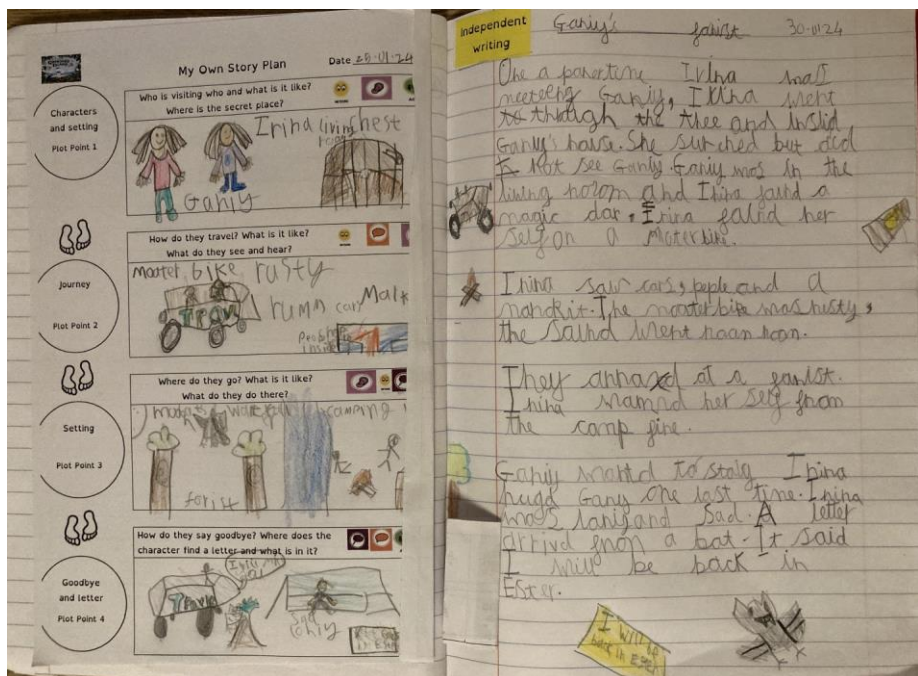 My Own Story Plan
Date 25-01-24
Characters
and setting
Plot Point 1
Who is visiting who and what is it like?
Where is the secret place?
Irina living chest
room
Ganiy
Journey
Plot Point 2
How do they travel? What is it like?
What do they see and hear?
mooter bike rusty
rumn car
Setting
Plot Point 3
Where do they go? What is it like?
What do they do there?
camping
forist
Goodbye
and letter
Plot Point 4
How do they say goodbye? Where does the
character find a letter and what is in it?
Sad
Independent
writing
Ganiy's forist 30-01-24
One a ponertime Irina was
meeteeng Ganiy, Irina went
to through the thee and inslid
Ganiy's house. She surched but did
not see Ganiy. Ganiy was in the
living room and Irina faind a
magic dar, Irina faind her
self on a moterbike.
Irina saw cars, peple and a
markit. The mooterbike was rusty,
the saind went roan roan.
They arrived at a forist.
Irina warmd her self from
the camp fire.
Ganiy wontd to staiy Irina
hugd Ganiy one last time. Irina
was loniy and sad. A letter
arrivd from a bat. It said
I will be back in
Ester.
I will be
back in Ester